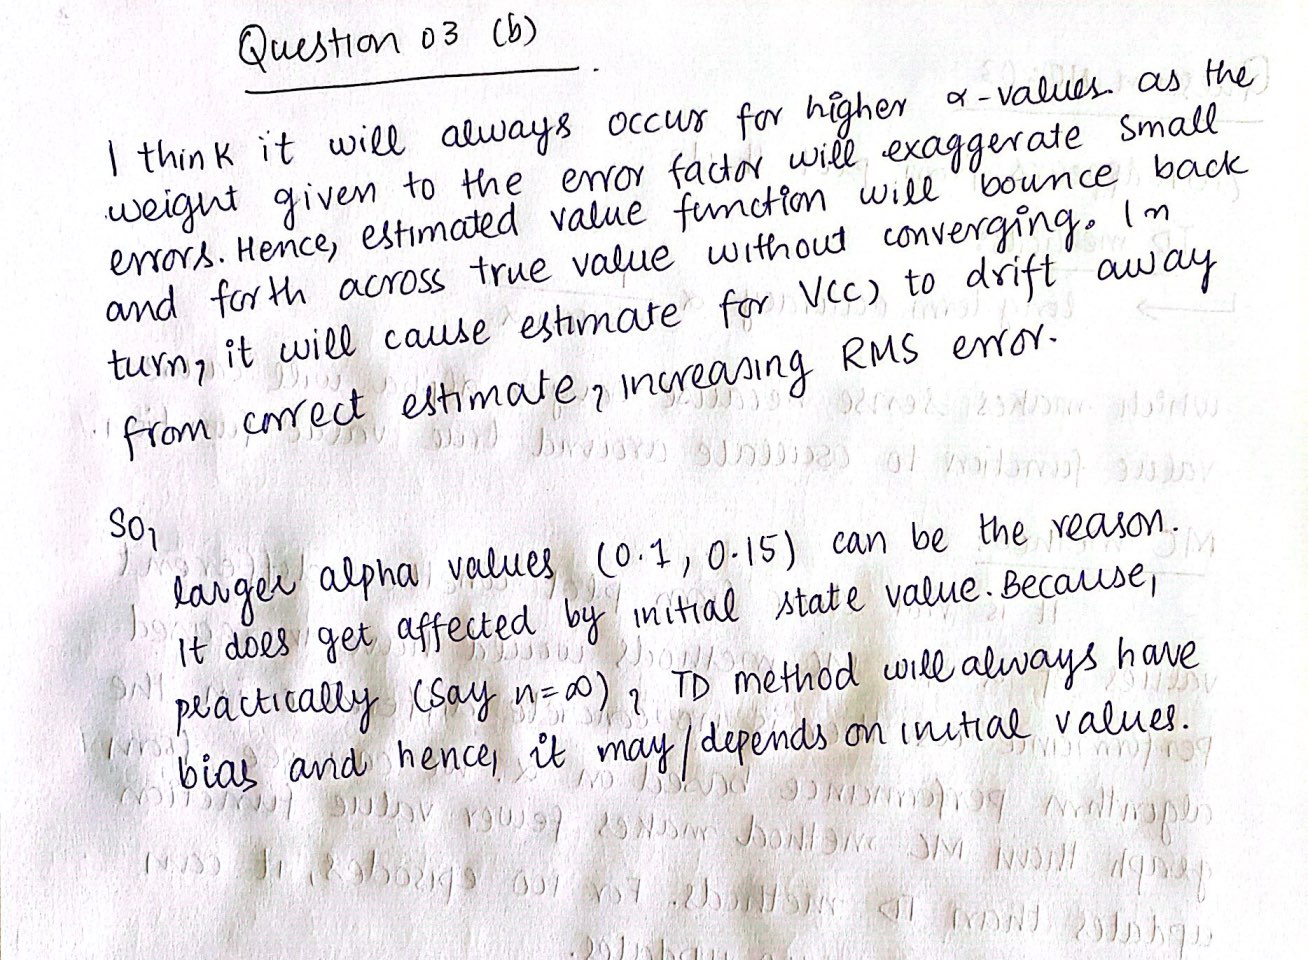 Question 03 (b)
I think it will always occur for higher α-values. as the
weight given to the error factor will exaggerate small
errors. Hence, estimated value function will bounce back
and forth across true value without converging. In
turn, it will cause estimate for V(C) to drift away
from correct estimate, increasing RMS error.
So,
larger alpha values (0.1, 0.15) can be the reason.
It does get affected by initial state value. Because,
practically (say n=∞), TD method will always have
bias and hence, it may/depends on initial values.